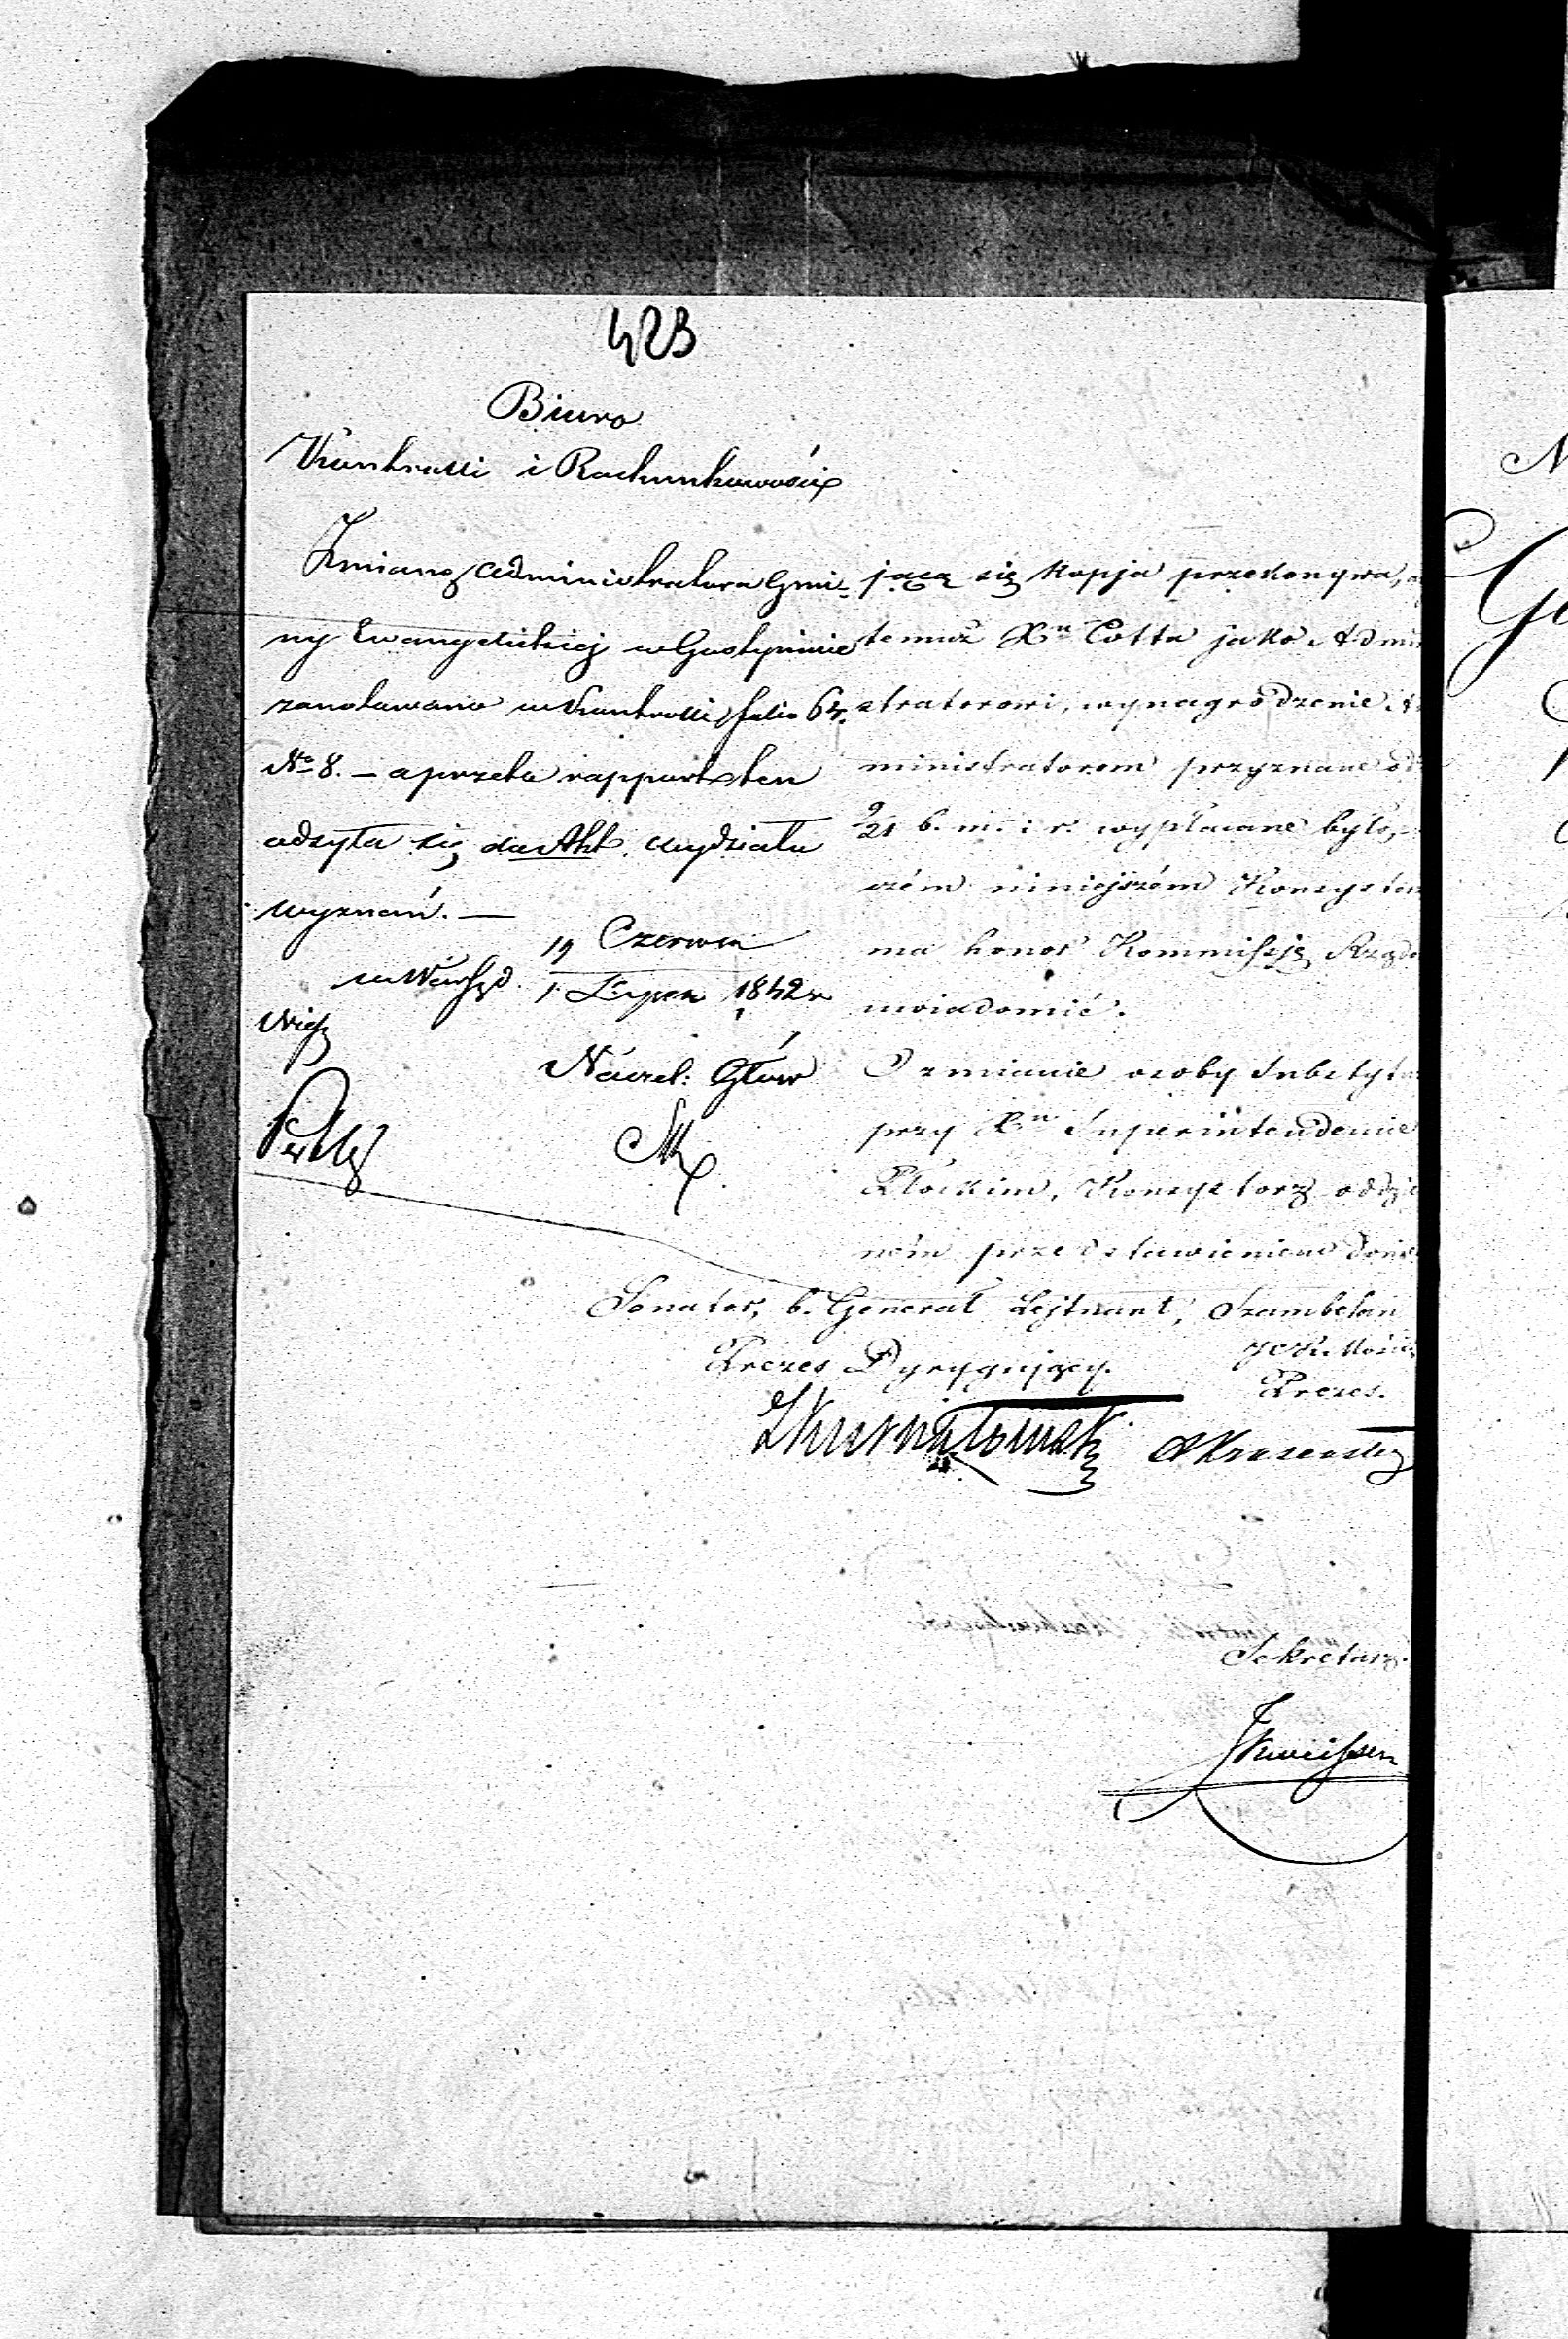 423
Biuro
Kontrolli i Rachunkowości
Zmianę Administratora Gmi-
ny Ewangelickiej w Gostyninie
zanotowano w Kontrolli folio 64.
No 8. – a przeto rapport ten
odsyła się do Akt. Wydziału
Wyznań. —
w Warsz. d. 19 Czerwca
1 Lipca 1842 r
Naczel: Głów
jącą się kopja przekonywa, a
temuż Xu Cotta jako Admi
stratorowi, wynagrodzenie A
ministratorom przyznane od
9/21 b. m. i r. wypłacane było,
czém niniejszém Konsystor
ma honor Kommissję Rządo
uwiadomić.
O zmianie osoby Substytu
przy Xu Superintendencie
Płockim, Konsystorz oddzie
ném przedstawieniem donie
Senator, b. Generał Lejtnant, Szambelan
Prezes Dyrygujący.
Prezes.
Sekretarz.